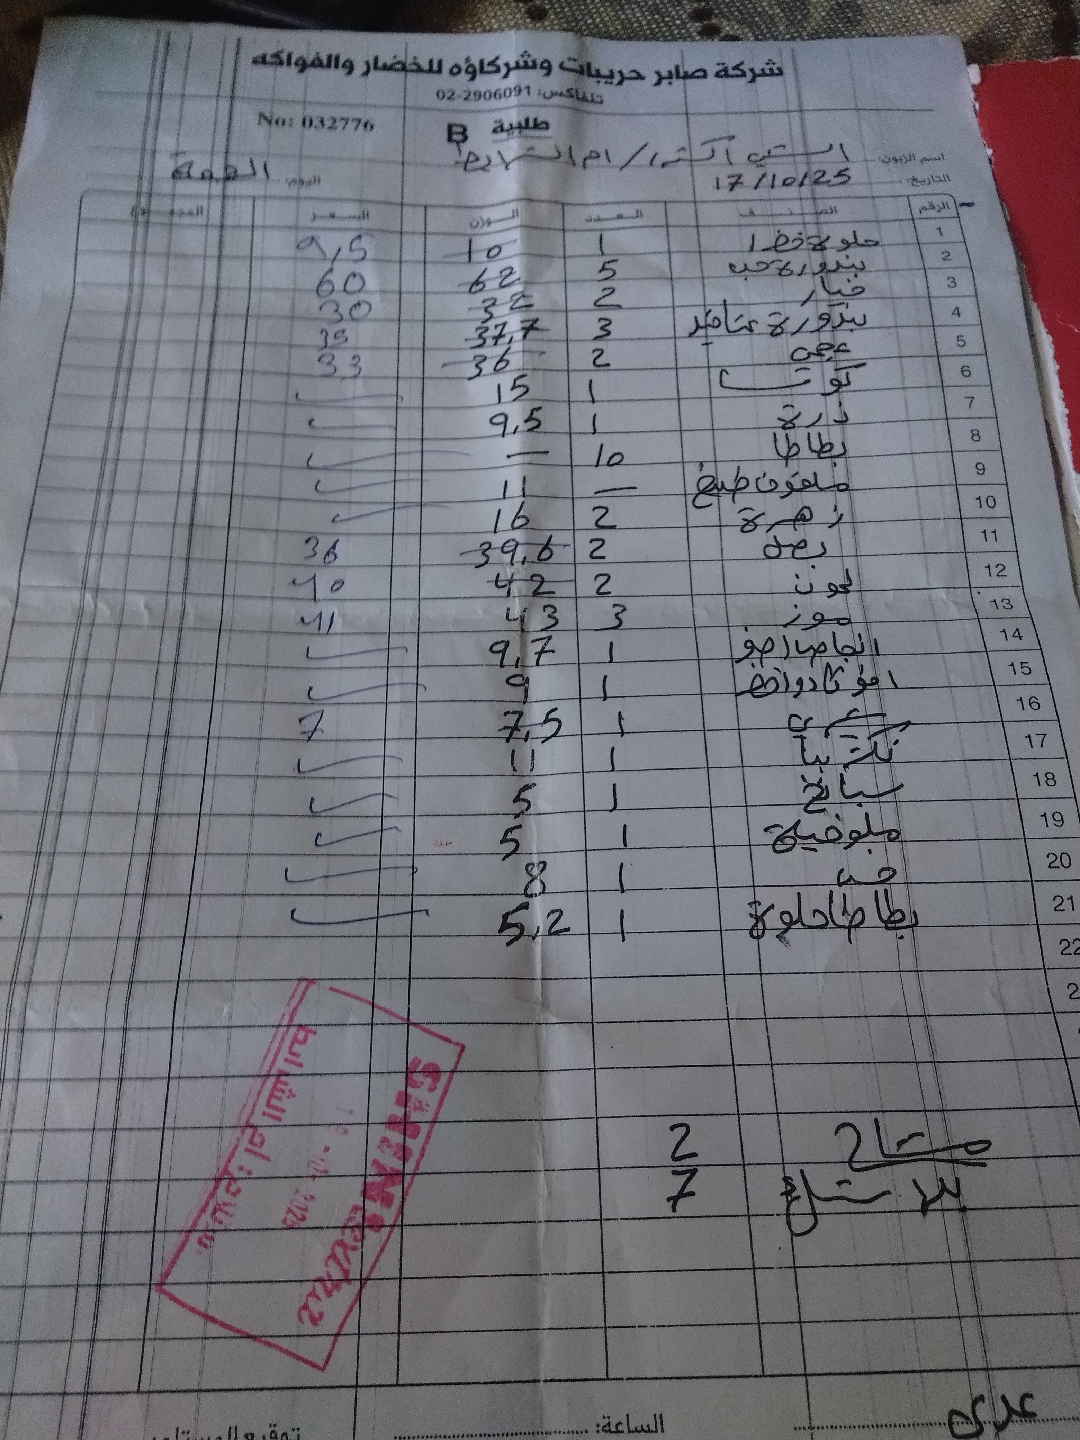 شركة صابر حريبات وشركاؤه للخضار والفواكه
تلفاكس: 02-2906091
No: 032776
طلبية B
اسم الزبون: اكسترا / ام الشرايط
التاريخ: 17/10/25 اليوم: الجمعة
الرقم الصنف العدد الوزن السعر المجموع
1 حلوة خضرا 1 10 9,5
2 بندورة حب 5 62 60
3 خيار 2 32 30
4 بندورة عناقيد 3 37,7 35
5 عجر 2 36 33
6 كوسا 1 15
7 ذرة 1 9,5
8 بطاطا 10 —
9 ملفوف طبيخ — 11
10 زهرة 2 16
11 بصل 2 39,6 36
12 ليمون 2 42 40
13 موز 3 43 41
14 انجاص اصفر 1 9,7
15 افوكادو اخضر 1 9
16 1 7,5 7
17 نكترينا 1 11
18 سبانخ 1 5
19 ملوخية 1 5
20 1 8
21 بطاطا حلوة 1 5,2
22
مشتاح 2
بلاستيك 7
فرع: ام الشرايط
2025
الساعة: